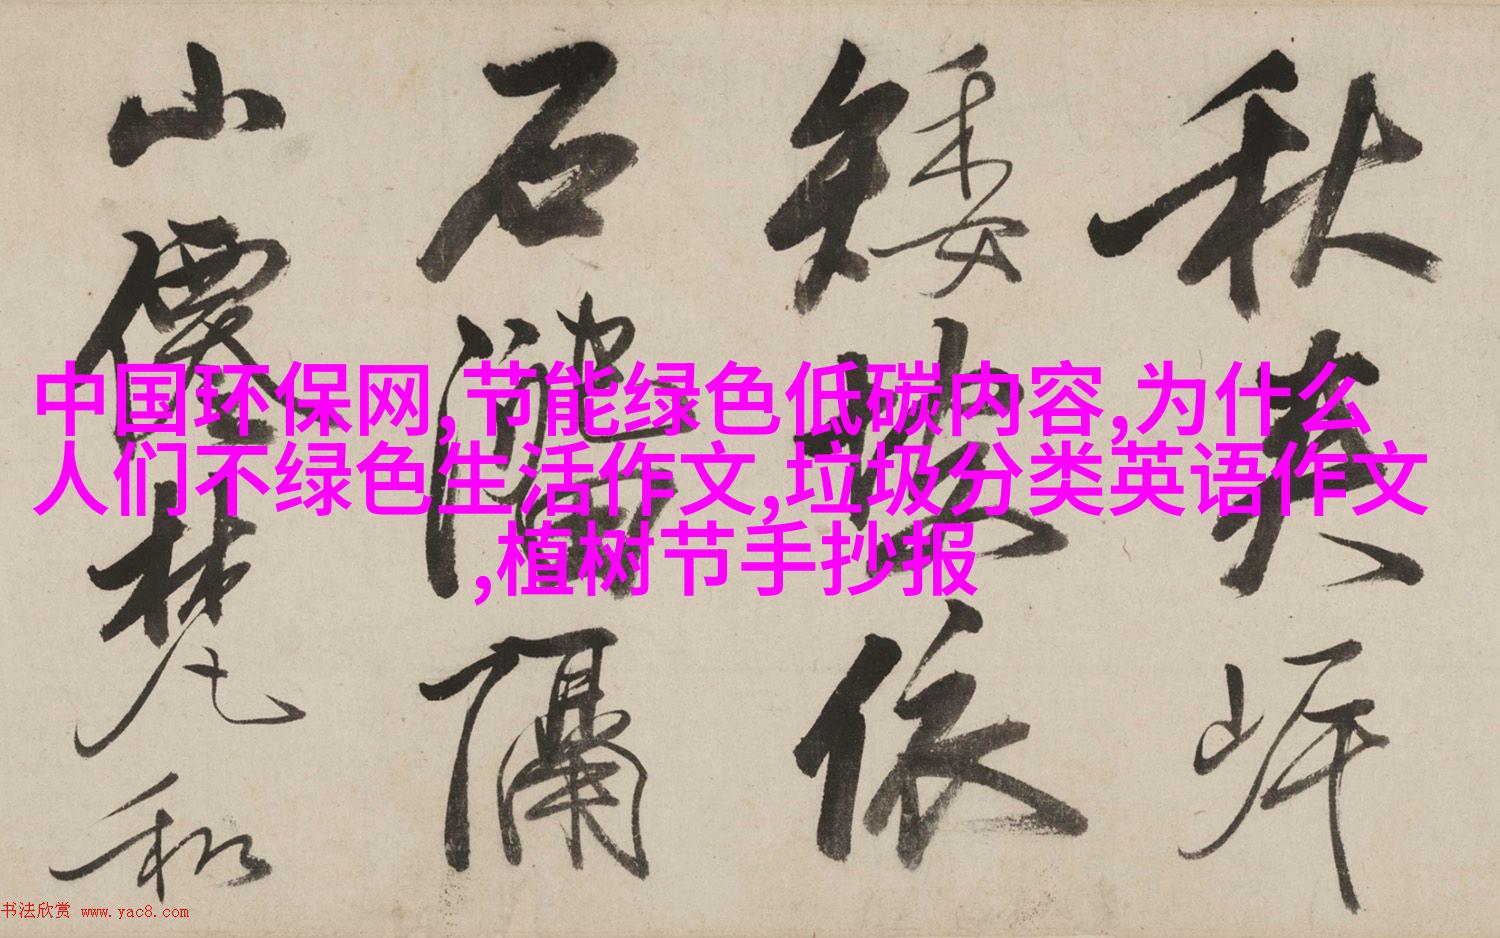 中国环保网,节能绿色低碳内容,为什么
人们不绿色生活作文,垃圾分类英语作文
,植树节手抄报
秋
矮依
石隔
山梵和
书法欣赏 www.yac8.com